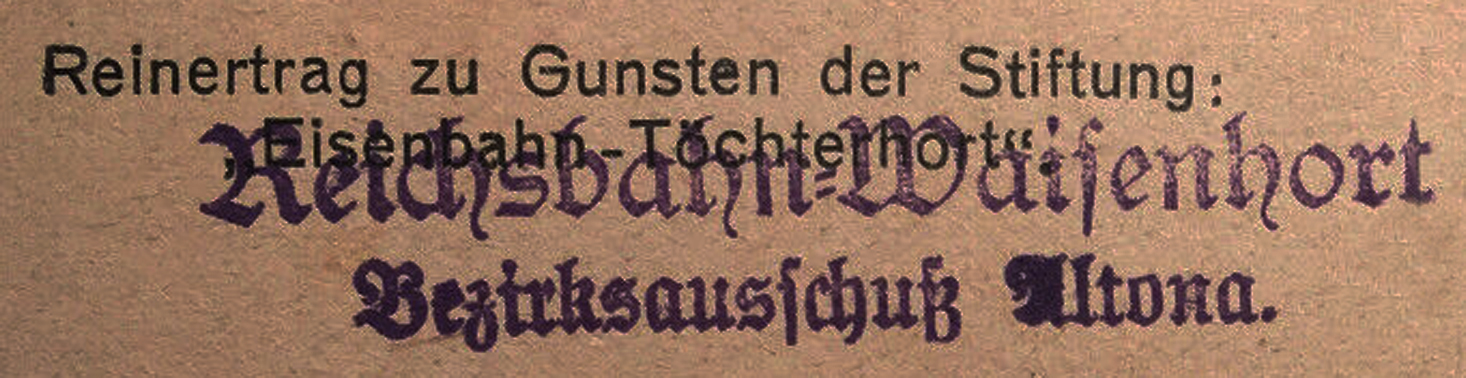 Reinertrag zu Gunsten der Stiftung:
„Eisenbahn-Töchterhort“.
Reichsbahn-Waisenhort
Bezirksausschuß Altona.